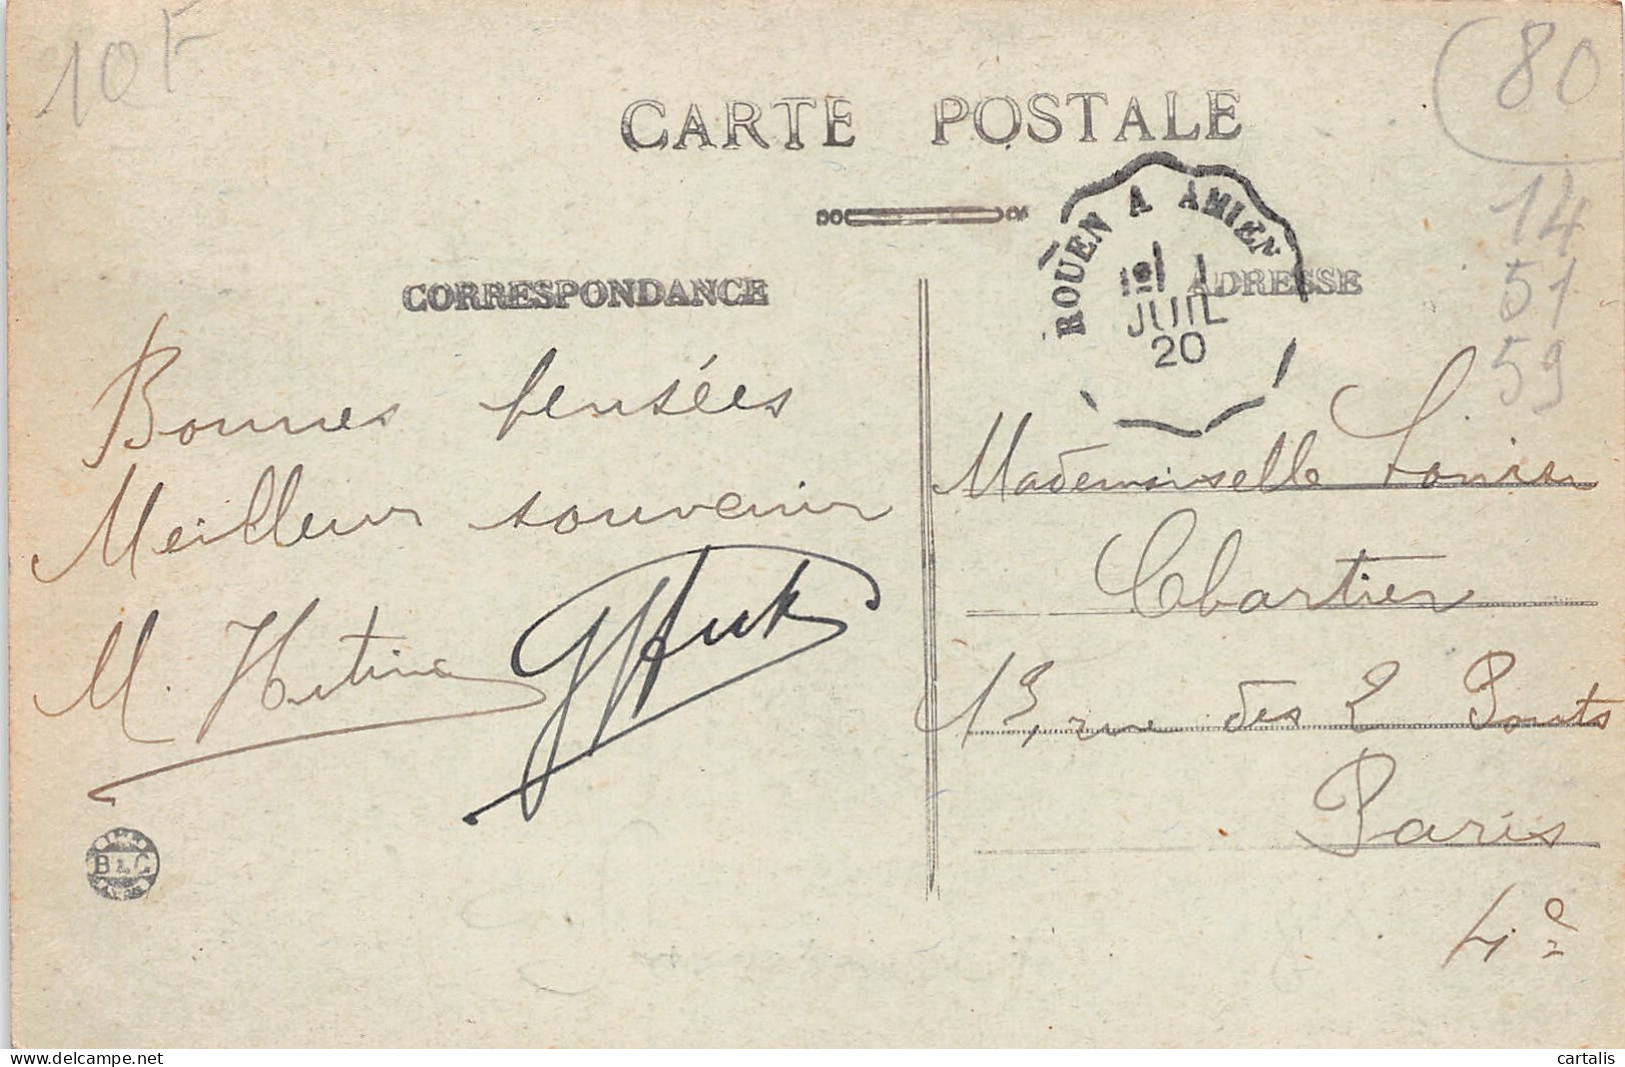 10F
80
CARTE POSTALE
14
51
59
ROUEN A AMIEN
1E1 1
JUIL
20
CORRESPONDANCE
ADRESSE
Bonnes pensées
Meilleur souvenir
M.
Mademoiselle Louise
Chartier
13, rue des 2 Ponts
Paris
4e
B & C
cartalis